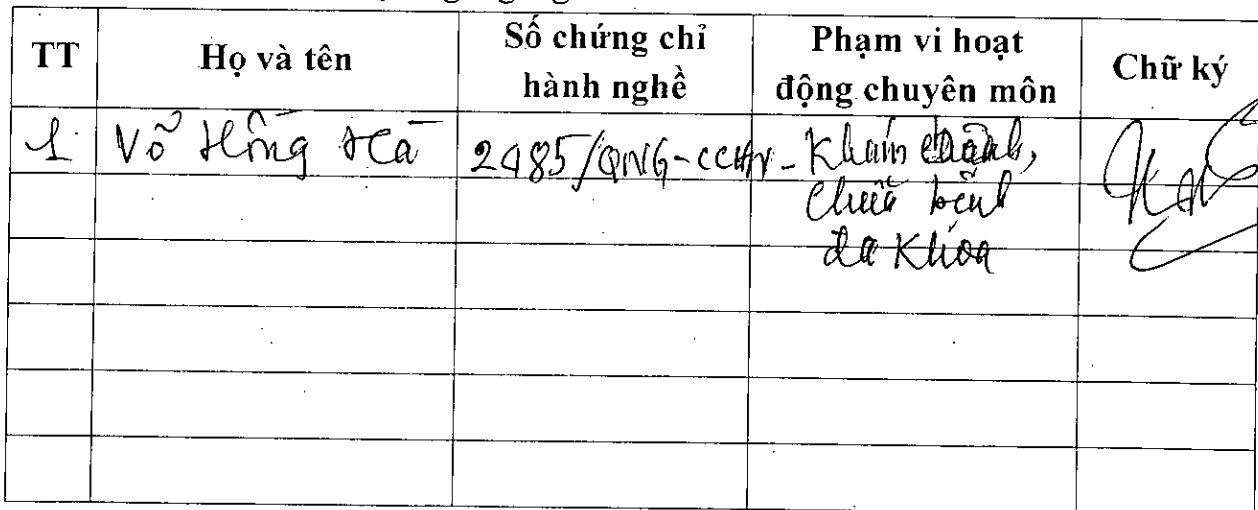 TT
Họ và tên
Số chứng chỉ
hành nghề
Phạm vi hoạt
động chuyên môn
Chữ ký
1
Võ Hồng Hà
2485/QNG-CCHN
- Khám bệnh,
chữa bệnh
đa khoa